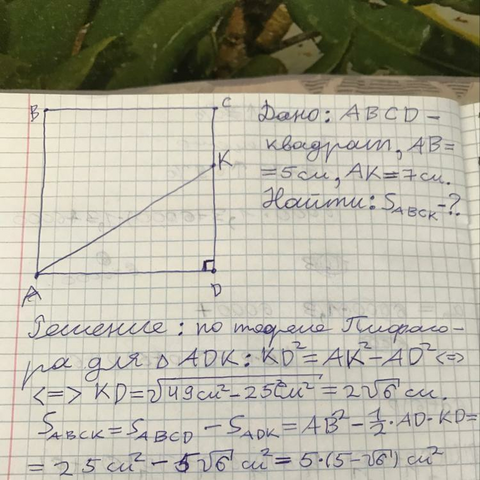 B
C
Дано: ABCD -
квадрат, AB=
K
=5см, AK=7см.
Найти: S_ABCK -?
A
D
Решение: по теореме Пифаго-
ра для △ ADK: KD²=AK²-AD² <=>
<=> KD=√(49см²-25см²)=2√6 см.
S_ABCK=S_ABCD - S_ADK=AB²-1/2·AD·KD=
=25см²-5√6 см²=5·(5-√6) см²